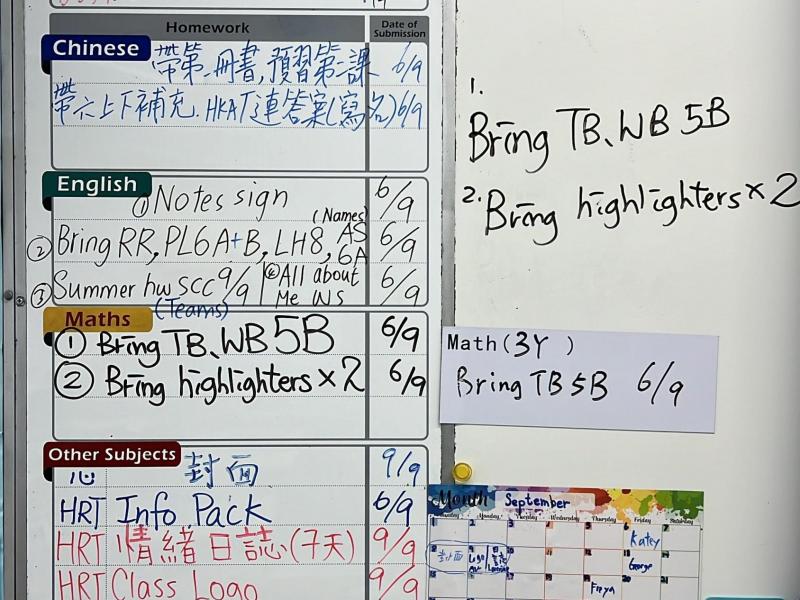 Homework
Date of Submission
Chinese
帶第一冊書,預習第一課 6/9
帶六上下補充. HKAT連答案(寫名) 6/9
English
① Notes sign 6/9
(Names)
② Bring RR, PL6A+B, LH8, AS 6A 6/9
③ Summer hw SCC 9/9 | ④ All about Me WS 6/9
(Teams)
Maths
① Bring TB、WB 5B 6/9
② Bring highlighters × 2 6/9
Other Subjects
封面 9/9
HRT Info Pack 6/9
HRT 情緒日誌(7天) 9/9
HRT Class Logo 9/9
1.
Bring TB、WB 5B
2. Bring highlighters × 2
Math (3Y )
Bring TB 5B 6/9
Month September
Monday Tuesday Wednesday Thursday Friday Saturday
Katey
封面
George
Freya